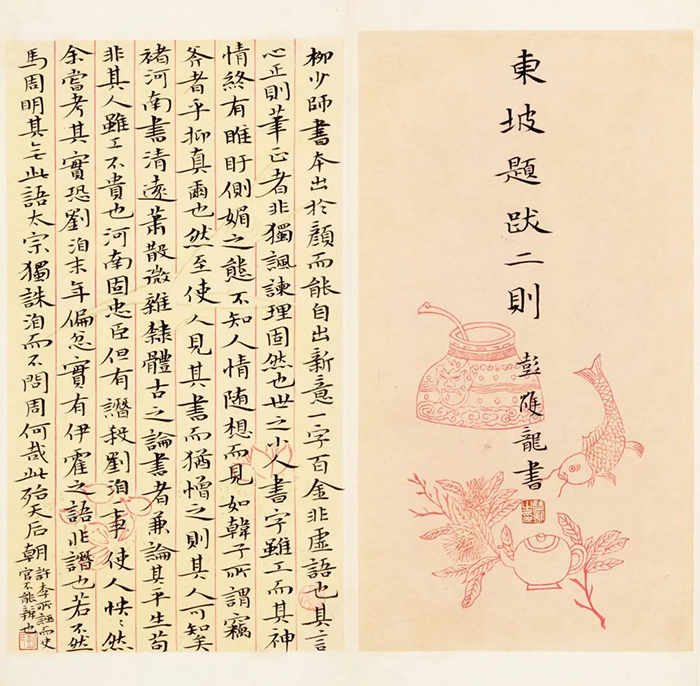 東坡題跋二則
彭雄龍書
柳少師書本出於顏而能自出新意一字百金非虛語也其言
心正則筆正者非獨諷諫理固然也世之小人書字雖工而其神
情終有睢盱側媚之態不知人情随想而見如韓子所謂竊
斧者乎抑真爾也然至使人見其書而猶憎之則其人可知矣
褚河南書清遠蕭散微雜隸體古之論書者兼論其平生苟
非其人雖工不貴也河南固忠臣但有譖殺劉洎一事使人怏〻然
余嘗考其實恐劉洎末年偏忽實有伊霍之語非譖也若不然
馬周明其无此語太宗獨誅洎而不問周何哉此殆天后朝
許李所誣而史
官不能辨也